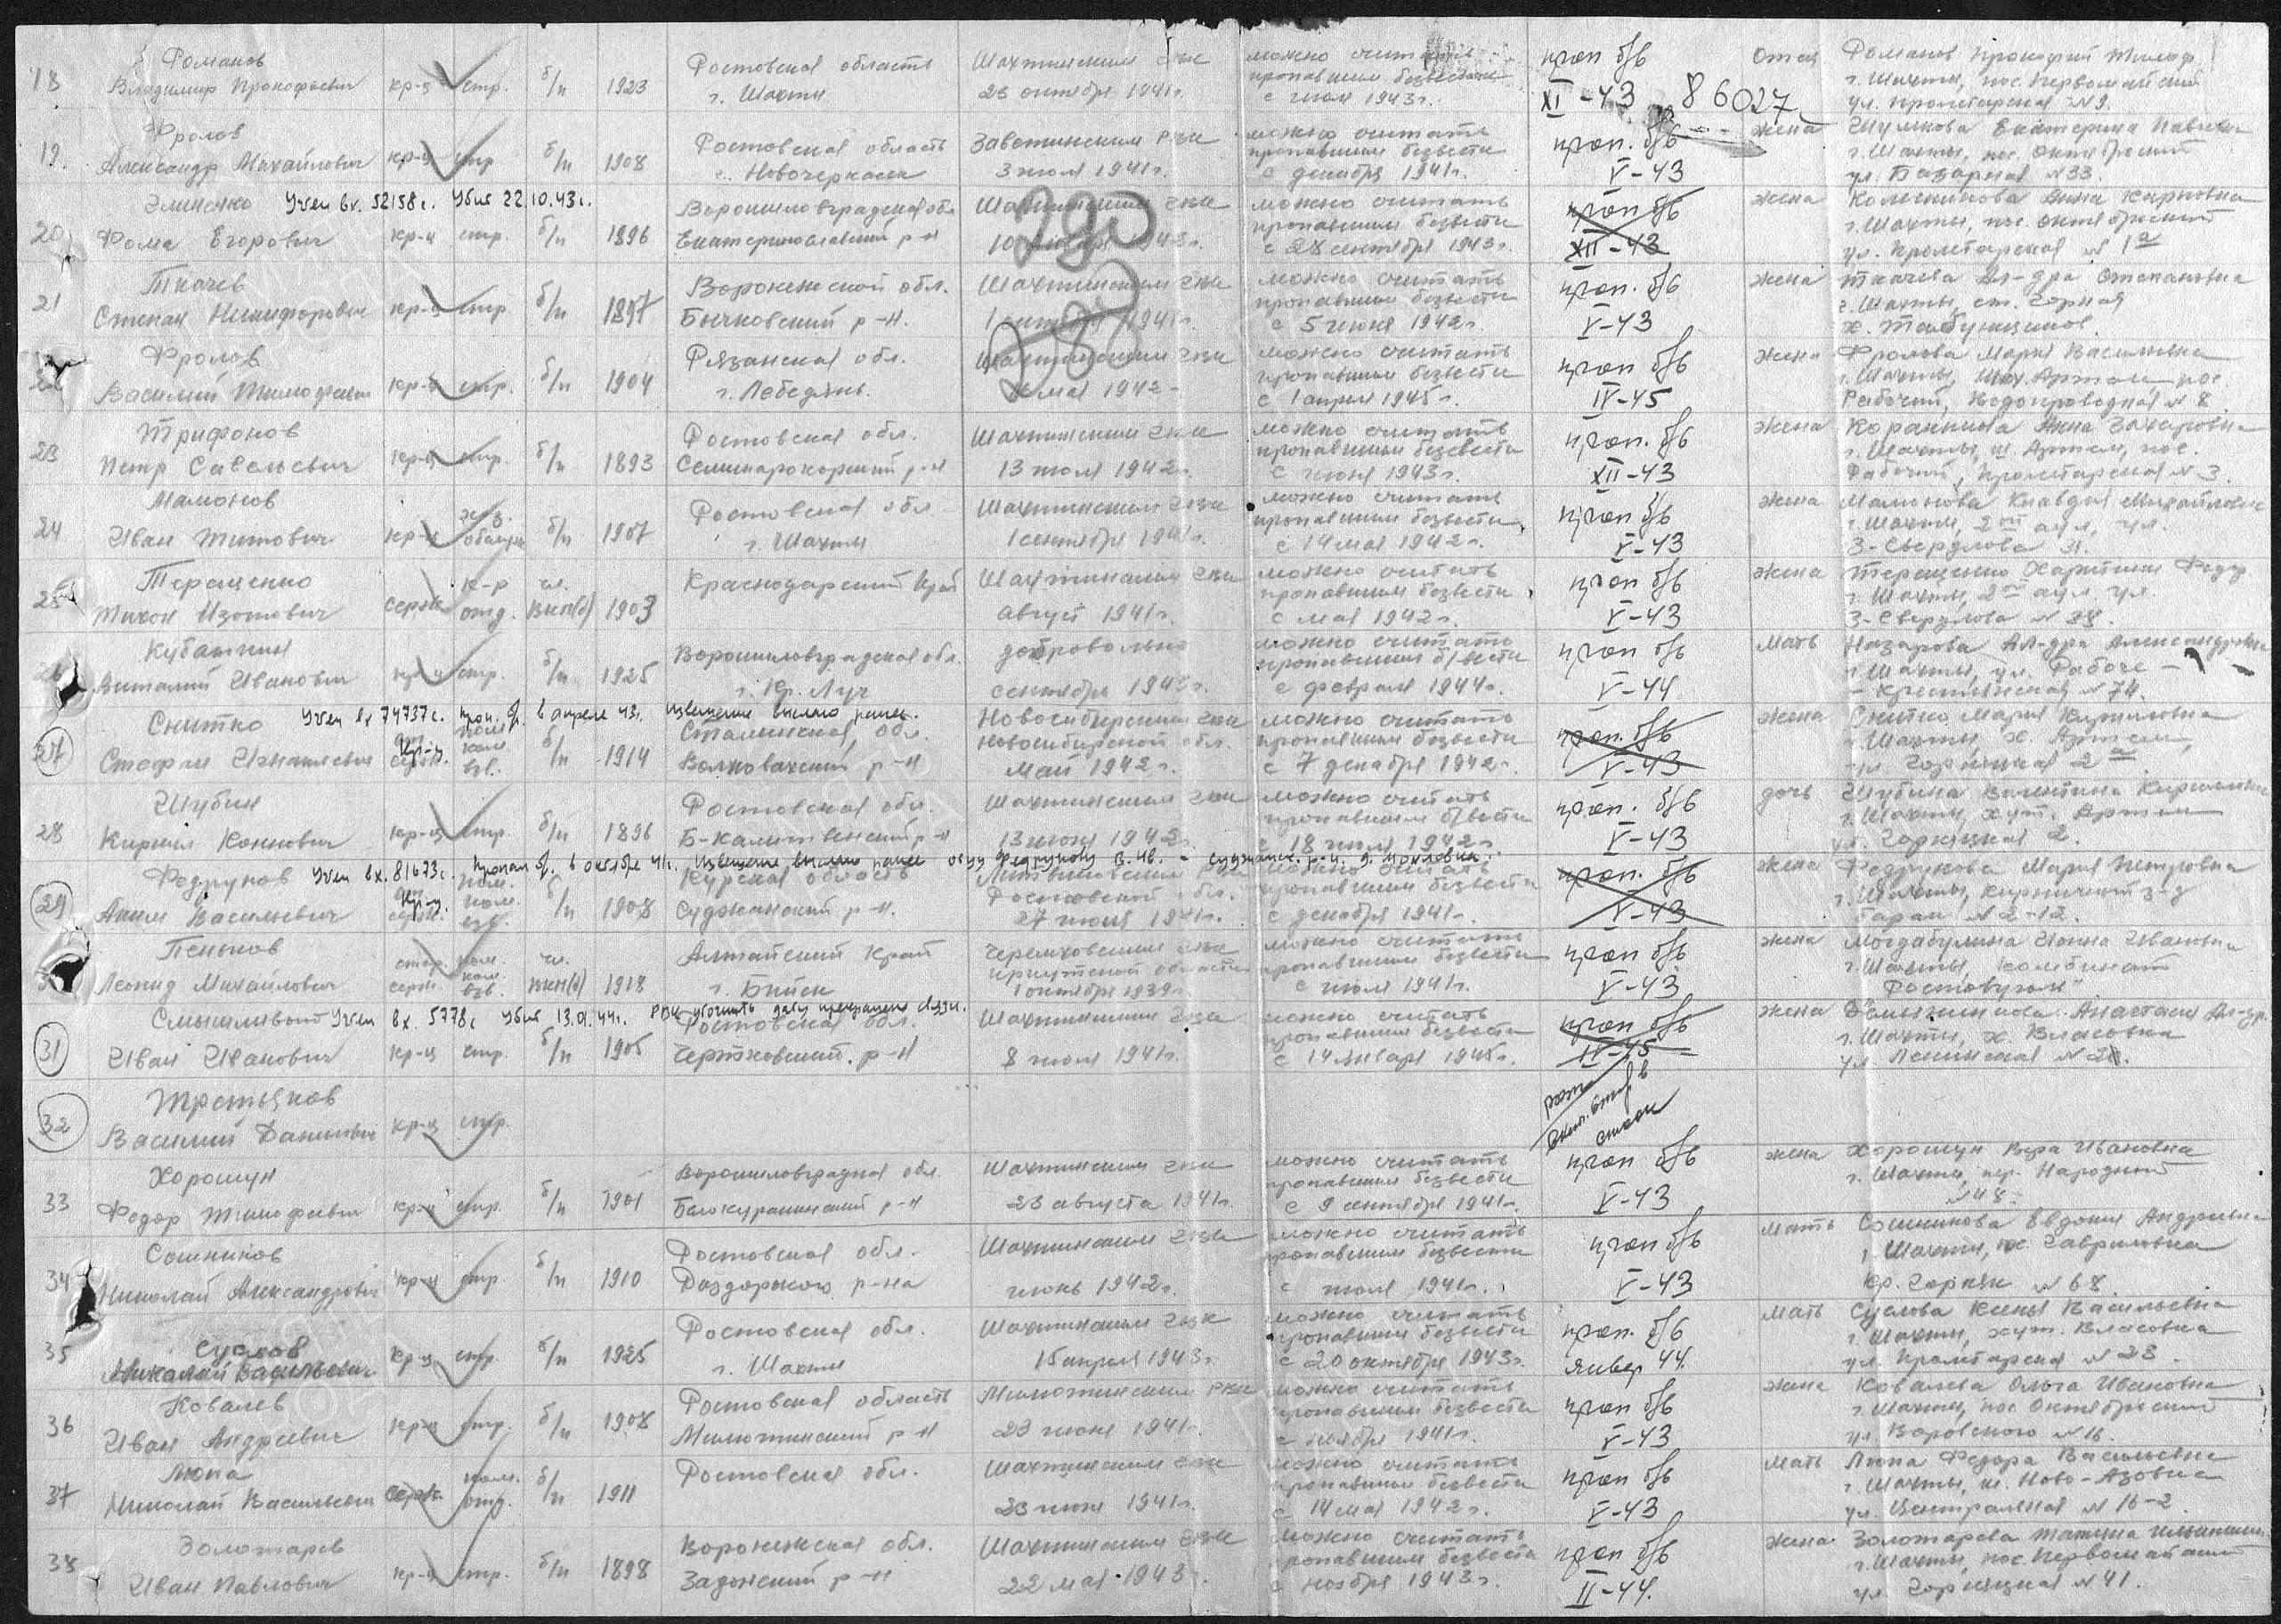 18 Романов Владимир Прокофьевич кр-ц стр. б/п 1923 Ростовская область г. Шахты Шахтинским ГВК 23 октября 1941г. можно считать пропавшим безвести с июля 1943г. проп б/в XI-43 86027 Отец Романов Прокофий Тимоф. г. Шахты, пос. Первомайский ул. Пролетарская №9.
19. Фролов Александр Михайлович кр-ц стр б/п 1908 Ростовская область г. Новочеркасск Заветинским РВК 3 июля 1941г. можно считать пропавшим безвести с декабря 1941г. проп. б/в V-43 жена Шумкова Екатерина г. Шахты, пос. Октябрьский ул. Базарная №33.
20 Элиненко Учен вх. 52158с. Убит 22.10.43г. Фома Егорович кр-ц стр. б/п 1896 Ворошиловградская обл Екатериновский р-н Шахтинским ГВК 10 января 1943г. можно считать пропавшим безвести с 28 сентября 1943г. проп б/в XII-43 жена Колесникова Анна Карповна г. Шахты, пос. Октябрьский ул. Пролетарская № 1а
290
21 Ткачев Степан Никифорович кр-ц стр б/п 1897 Воронежской обл. Бычковский р-н. Шахтинским ГВК 1941г. можно считать пропавшим безвести с 5 июня 1942г. проп. б/в V-43 жена Ткачева Ал-дра Степановна г. Шахты, ст. Горная х. Табунщиков.
Фролов Василий Тимофеевич кр-ц стр. б/п 1904 Рязанская обл. г. Лебедянь. Шахтинским ГВК мая 1942 можно считать пропавшим безвести с 1 апреля 1945г. проп б/в IV-45 жена Фролова Мария Васильевна г. Шахты, шах. Артем пос. Рабочий, Водопроводная № 8
23 Трифонов Петр Савельевич кр-ц стр. б/п 1893 Ростовская обл. Семикаракорский р-н Шахтинским ГВК 13 июля 1942г. можно считать пропавшим безвести с июня 1943г. проп. б/в XII-43 жена Анна Захаровна г. Шахты, ш. Артем, пос. Рабочий, Пролетарская № 3.
24 Мамонов Иван Титович кр-ц б/п 1907 Ростовская обл г. Шахты Шахтинским ГВК 1 сентября 1941г. можно считать пропавшим безвести с 14 мая 1942г. проп б/в V-43 жена Мамонова Клавдия Михайловна г. Шахты, 2ой аул, ул. 3-Свердлова 31.
25 Терещенко Тихон Изотович серж к-р отд. чл. ВКП(б) 1903 Краснодарский край Шахтинским ГВК август 1941г. можно считать пропавшим безвести с мая 1942г. проп б/в V-43 жена Терещенко Харитина Федор. г. Шахты, 2ой аул, ул. 3-Свердлова № 38.
26 Кубаткин Виталий Иванович кр-ц стр. б/п. 1925 Ворошиловградская обл. г. Кр. Луч добровольно сентябрь 1943г. можно считать пропавшим б/вести с февраля 1944г. проп б/в V-44 мать Назарова Ал-дра Александровна г. Шахты, ул. Рабоче-Крестьянская №74.
27 Снитко Учен вх 74737с. проп. б/в. в апреле 43г. Извещение выслано ранее. Стефан Игнатьевич кр-ц пом ком. взв. б/п 1914 Сталинская обл. Волновахский р-н Новосибирским ГВК Новосибирской обл. май 1942г. можно считать пропавшим безвести с 7 декабря 1942г. проп. б/в V-43 жена Снитко Мария Кирилловна г. Шахты, х Артем, ул. Горняцкая 2а
28 Шубин Кирилл Кононович кр-ц стр. б/п 1896 Ростовская обл. Б-Калитвенский р-н Шахтинским ГВК 13 июня 1942г. можно считать пропавшим б/вести с 18 июля 1942г. проп. б/в V-43 дочь Шубина Валентина Кирилловна г. Шахты, хут. Артем ул. Горняцкая 2.
29 Федрунов Учен вх. 81673с. Пропал б/в. в октябре 41г. Извещение выслано ранее отцу Федрунову В. Ив. - Суджанск. р-н. Аким Васильевич кр-ц. пом. ком. взв. б/п 1908 Курская область Суджанский р-н. Литвиновским РВК Ростовской обл. 27 июня 1941г. можно считать пропавшим безвести с декабря 1941г. проп. б/в V-43 жена Федрунова Мария Петровна г. Шахты, Кирпичный з-д барак №2-12.
Пеньков Леонид Михайлович стар. серж. пом. ком. взв. чл. ВКП(б) 1918 Алтайский край г. Бийск Черемховским ГВК Иркутской области 1 октября 1939г. можно считать пропавшим безвести с июля 1941г. проп б/в V-43 жена Ивановна г. Шахты, комбинат "Ростовуголь"
31 Смышливой Учен вх. 5778с Убит 13.01.44г. РВК уточнить дату прекращения связи. Иван Иванович кр-ц стр. б/п 1905 Ростовская обл. Чертковский р-н Шахтинским ГВК 8 июля 1941г. можно считать пропавшим безвести с 14 января 1945г. проп б/в IV-45 жена Анастасия Ал-др. г. Шахты, х. Власовка ул. Ленинская №
32 Третьяков Василий Данилович кр-ц стр.
33 Хорошун Федор Тимофеевич кр-ц стр. б/п 1901 Ворошиловградская обл. Белокуракинский р-н Шахтинским ГВК 23 августа 1941г. можно считать пропавшим безвести с 9 сентября 1941г. проп б/в V-43 жена Хорошун Вера Ивановна г. Шахты, пер. Народный №48.
34 Сошников Николай Александрович кр-ц стр. б/п 1910 Ростовская обл. Раздорского р-на Шахтинским ГВК июнь 1942г. можно считать пропавшим безвести с июля 1941г. проп б/в V-43 мать Сошникова Евдокия Андреевна г. Шахты, пос. Гавриловка Кр. Горняк № 68
35 Суслов Николай Васильевич кр-ц стр. б/п 1925 Ростовская обл. г. Шахты Шахтинским ГВК 15 апреля 1943г. можно считать пропавшим безвести с 20 октября 1943г. проп. б/в январ 44. мать Суслова Ксенья Васильевна г. Шахты, хут. Власовка ул. Пролетарская № 23.
36 Ковалев Иван Андреевич кр-ц стр. б/п 1908 Ростовская область Милютинский р-н Милютинским РВК 23 июня 1941г. можно считать пропавшим безвести с ноября 1941г. проп б/в V-43 жена Ковалева Ольга Ивановна г. Шахты, пос Октябрьский ул. Воровского №16.
37 Люпа Николай Васильевич серж. ком. отд. б/п 1911 Ростовская обл. Шахтинским ГВК 23 июня 1941г. можно считать пропавшим безвести с 14 мая 1942г. проп б/в V-43 мать Люпа Федора Васильевна г. Шахты, ш. Ново-Азовка ул. Центральная № 16-2
38 Золотарев Иван Павлович кр-ц стр. б/п 1898 Воронежская обл. Задонский р-н Шахтинским ГВК 22 мая 1943г. можно считать пропавшим безвести с ноября 1943г. проп б/в II-44. жена Золотарева Татьяна г. Шахты, пос Первомайский ул. Горняцкая №41.